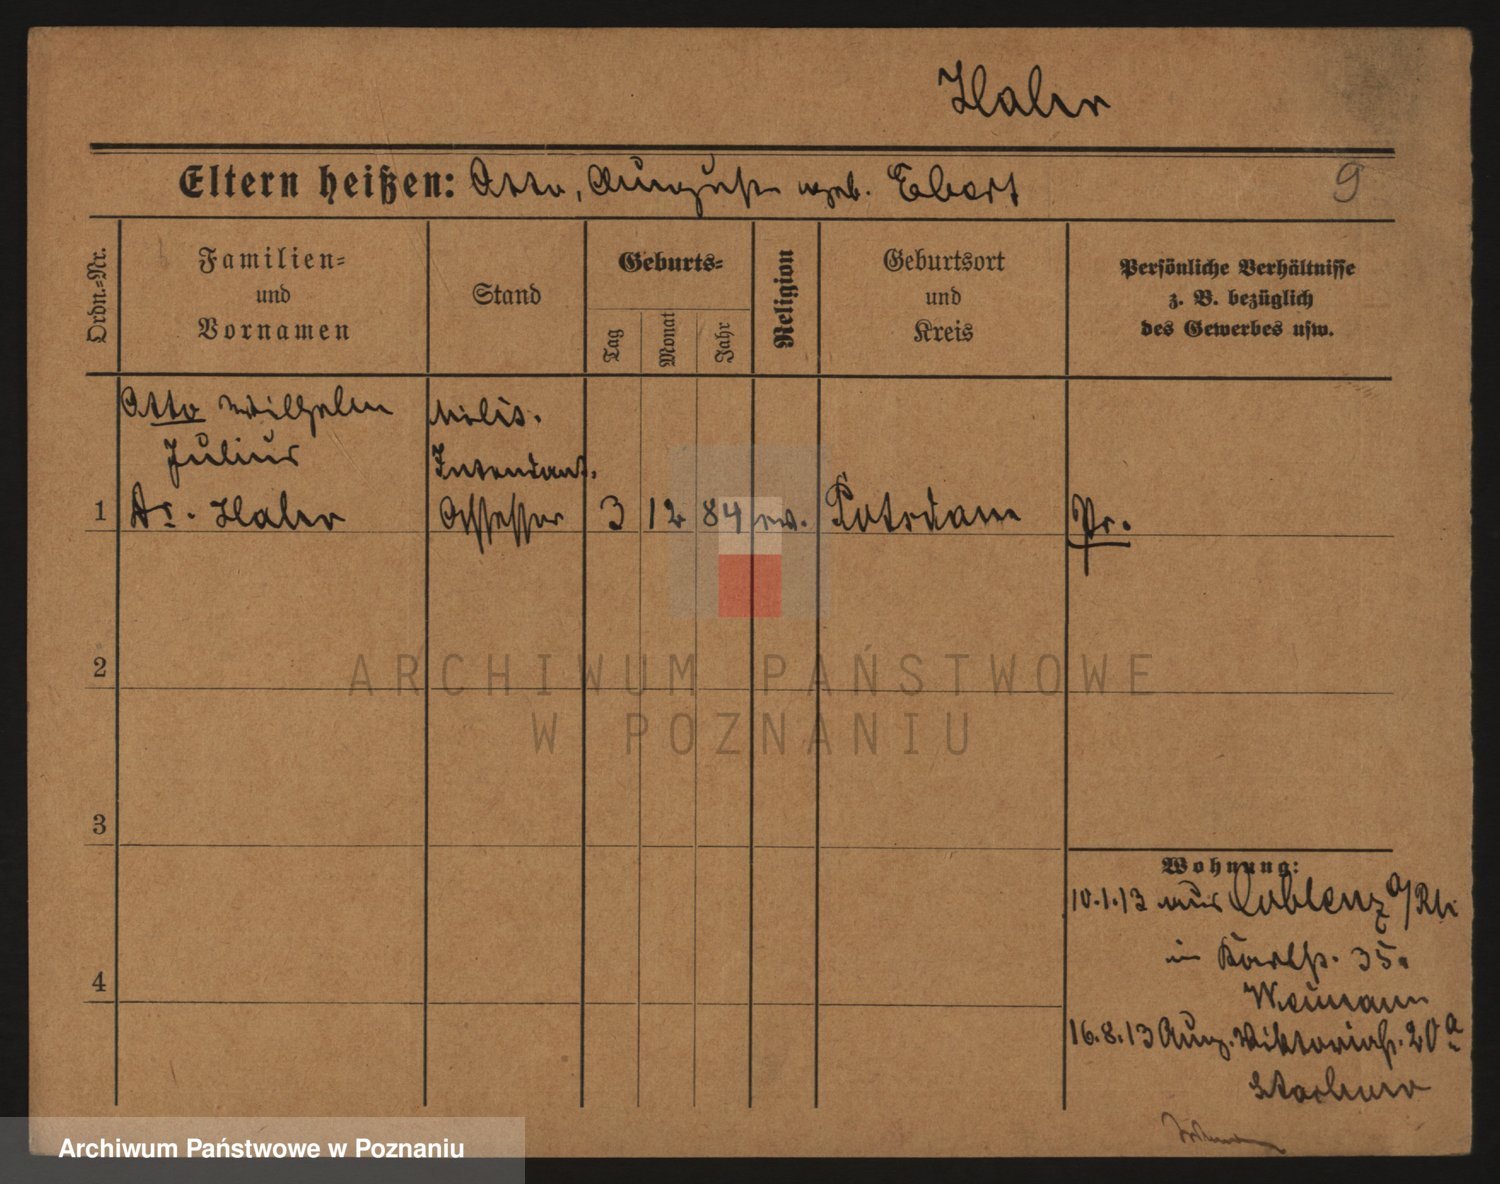 Eltern heißen: Otto, Auguste geb. Ebert
9
Ordn.=Nr.
Familien=
und
Vornamen
Stand
Geburts=
Tag
Monat
Jahr
Religion
Geburtsort
und
Kreis
Persönliche Verhältnisse
z. B. bezüglich
des Gewerbes usw.
Otto Wilhelm
Julius
Milit.
Intendant.
1
Dr.
Assessor
3
12
84
ev.
Potsdam
Pr.
2
3
4
Wohnung:
10.1.13 aus Coblenz a/Rh
in Karlstr. 35
Neumann
16.8.13 Aug. Viktoriastr. 20a
ARCHIWUM PAŃSTWOWE
W POZNANIU
Archiwum Państwowe w Poznaniu